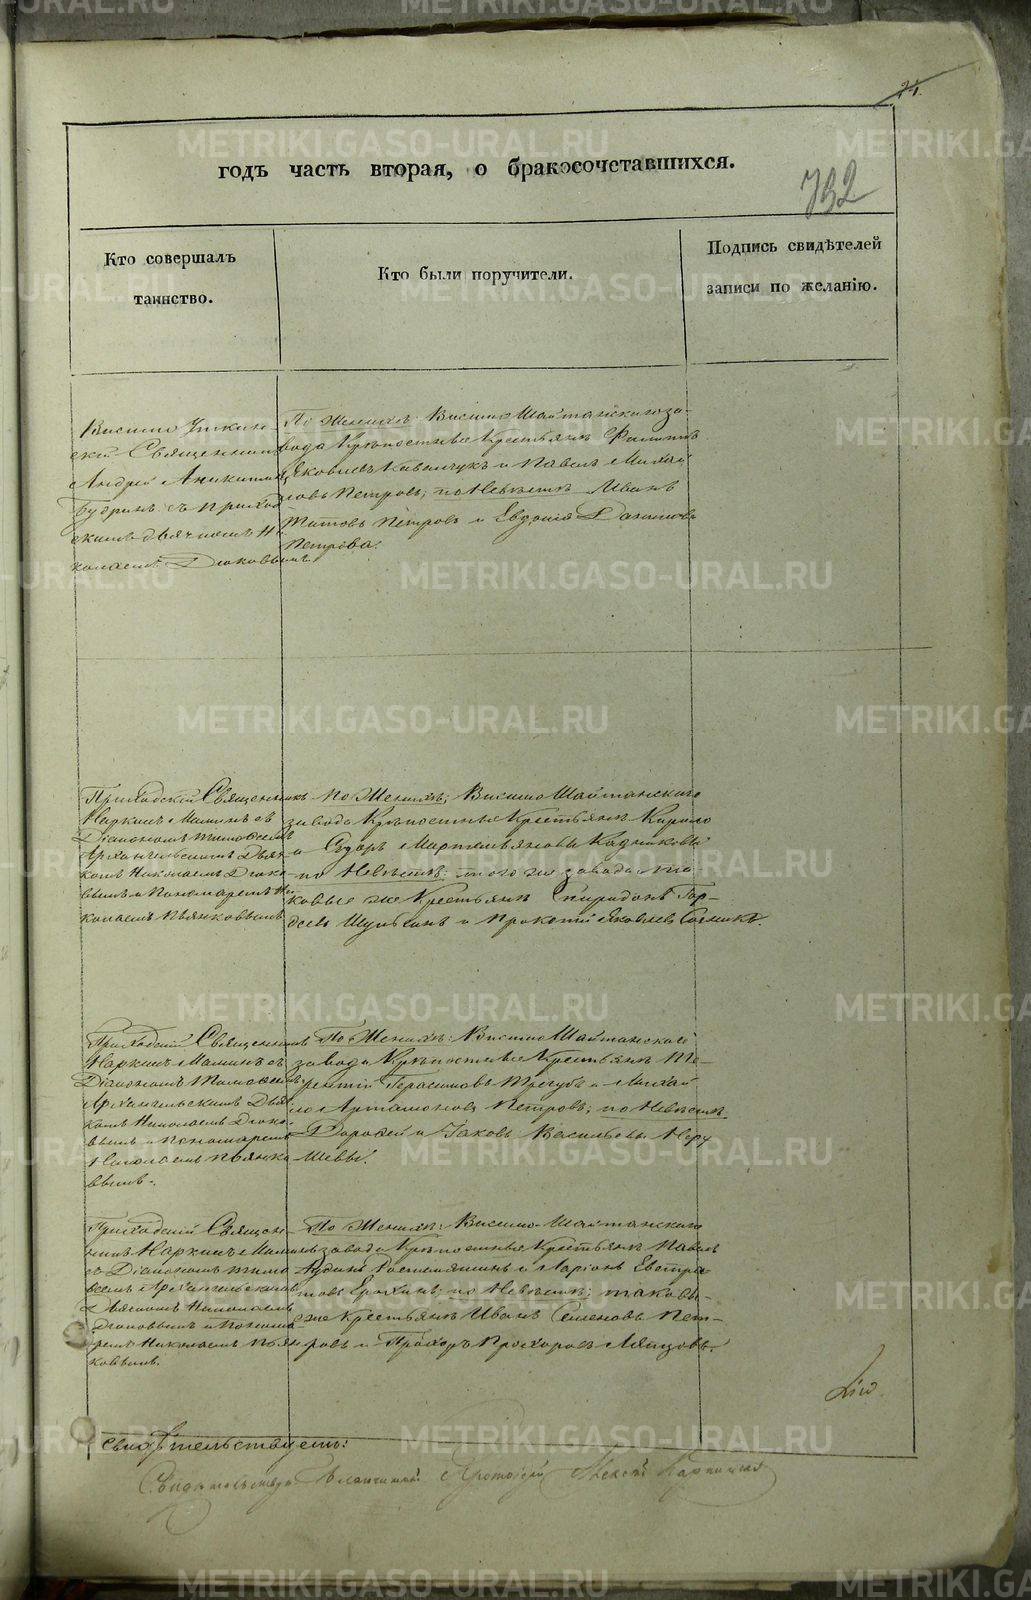 годъ часть вторая, о бракосочетавшихся.
732
Кто совершалъ
таинство.
Кто были поручители.
Подпись свидѣтелей
записи по желанію.
Висимо Уткин-
ской Священник
Андрей Аникитинъ
Будринъ съ приход
скимъ дьячкомъ Ни
колаемъ
По Женихѣ: Висимо Шайтанскаго за-
вода Крѣпостные Крестьяне Филиппъ
Яковлевъ и Павелъ Михай
ловъ Петровъ; по Невѣстѣ Иванъ
Титовъ Петровъ и Евдокія
Петрова.
Приходскій Священникъ
Наркисъ Маминъ съ
Діакономъ Тимофеемъ
Архангельскимъ Дьяч-
комъ Николаемъ Дюко
вымъ и Пономаремъ Ни
колаемъ Пьянковымъ
По Женихѣ; Висимо Шайтанскаго
завода Крѣпостные Крестьяне Кирило
и Сидоръ Мартемьяновы Кадниковы
по Невѣстѣ: того же завода та
ковые же Крестьяне Спиридонъ Гор-
деевъ и Прокопій Яковлевъ
Приходскій Священникъ
Наркисъ Маминъ съ
Діакономъ Тимофеемъ
Архангельскимъ Дьяч
комъ Николаемъ Дюко
вымъ и Пономаремъ
Николаемъ Пьянко
вымъ.
По Женихѣ: Висимо Шайтанскаго
завода Крѣпостные Крестьяне Те-
рентій Герасимовъ Трегубъ и Михай
ло Артамоновъ Петровъ; по Невѣстѣ
Дорофей и Іаковъ Васильевы Неру
шевы.
Приходскій Священ-
никъ Наркисъ Маминъ
съ Діакономъ Тимо
веемъ Архангельскимъ
Дьячкомъ Николаемъ
Дюковымъ и Понома-
ремъ Николаемъ Пьян
ковымъ.
По Женихѣ: Висимо-Шайтанскаго
завода Крѣпостные Крестьяне Павелъ
и Ларіонъ Евстра
товъ Ерохинъ; по Невѣстѣ; таковы-
еже Крестьяне Иванъ Семеновъ Пет-
ровъ и Прохоръ Прохоровъ
свидѣтельствуетъ:
Свидѣтельствуетъ Благочинный Протоіерей Алексій Карпинскій
METRIKI.GASO-URAL.RU